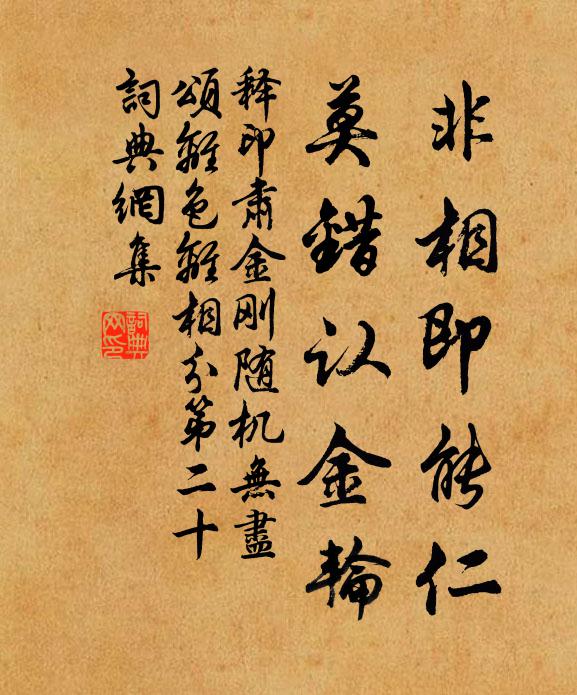 非相即能仁
莫錯认金輪
释印肃金刚随机無盡
頌離色離相分第二十
詞典網集
詞典网印